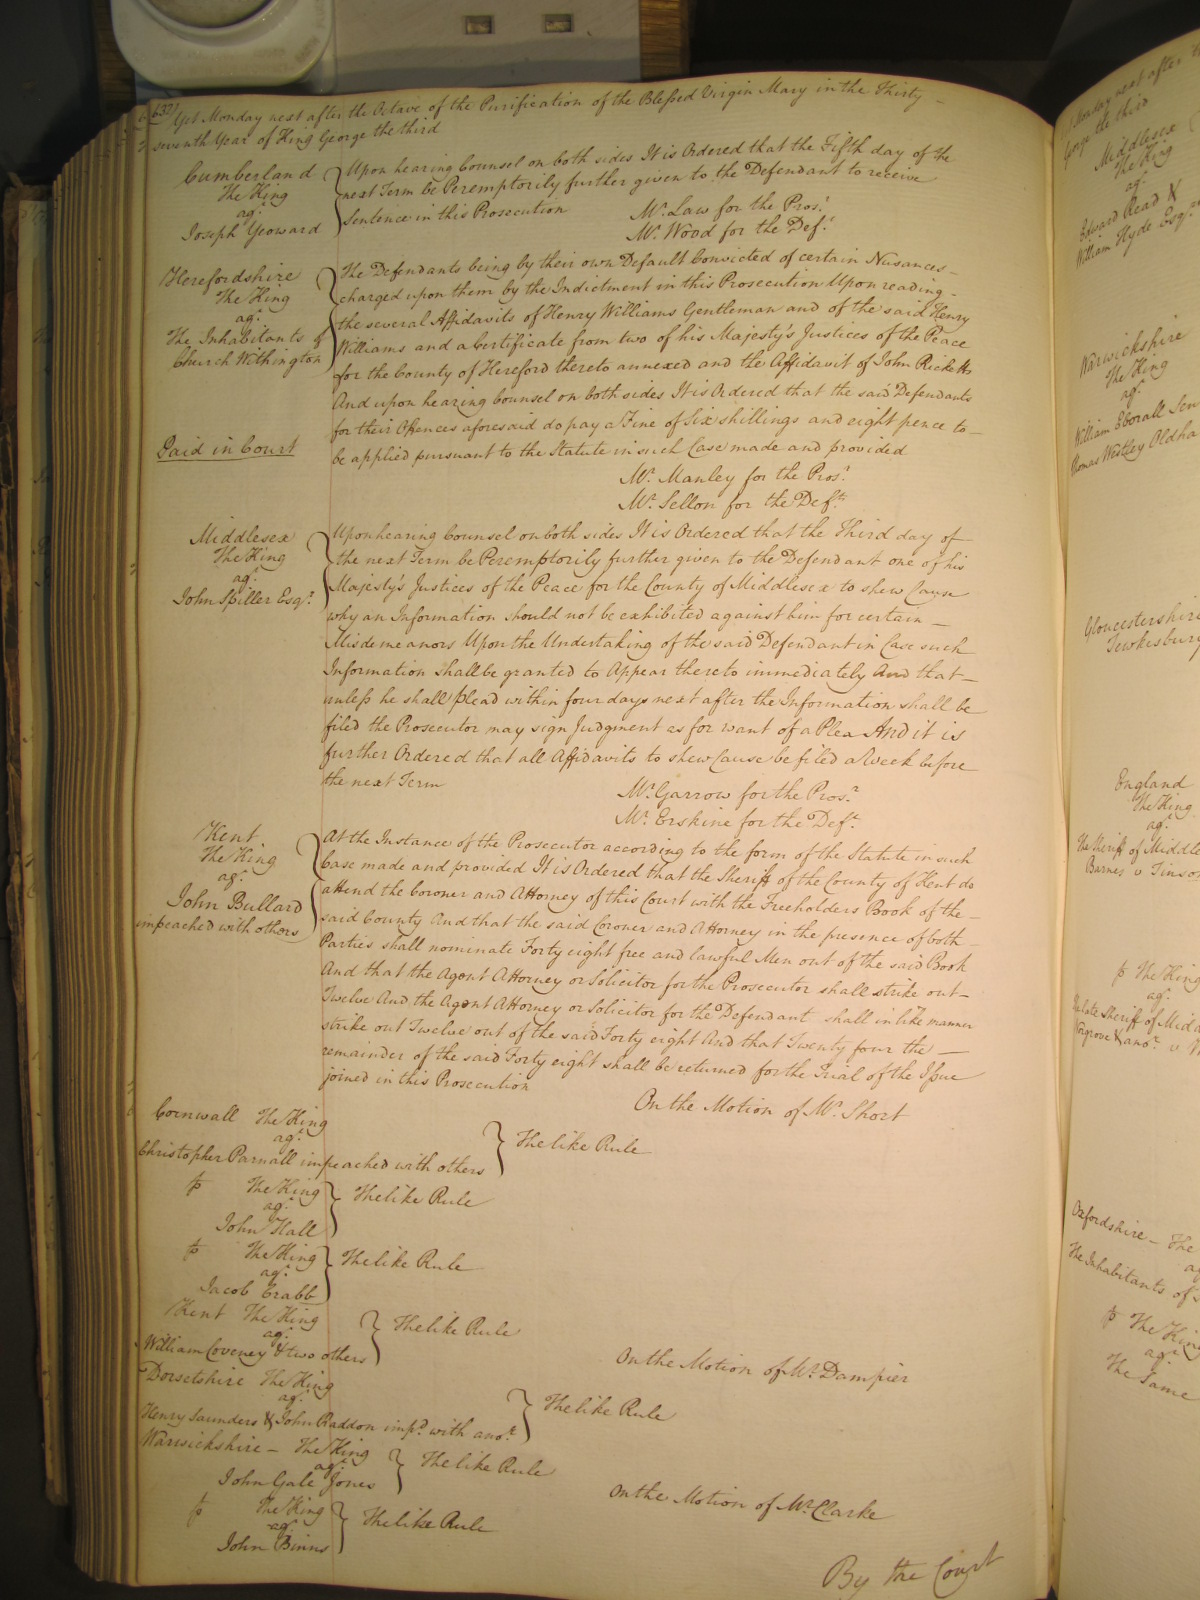 632/ Yet Monday next after the Octave of the Purification of the Blessed Virgin Mary in the Thirty
seventh Year of King George the third
Cumberland
The King
agt.
Joseph Yeoward
Upon hearing Counsel on both sides It is Ordered that the Fifth day of the
next Term be Peremptorily further given to the Defendant to receive
Sentence in this Prosecution
Mr. Law for the Prosr.
Mr. Wood for the Deft.
Herefordshire
The King
agt.
The Inhabitants of
Church Withington
The Defendants being by their own Default Convicted of certain Nusances
charged upon them by the Indictment in this Prosecution Upon reading
the several Affidavits of Henry Williams Gentleman and of the said Henry
Williams and a Certificate from two of his Majesty's Justices of the Peace
for the County of Hereford thereto annexed and the Affidavit of John Ricketts
And upon hearing Counsel on both sides It is Ordered that the said Defendants
for their Offences aforesaid do pay a Fine of Six shillings and eight pence to
be applied pursuant to the Statute in such Case made and provided
Paid in Court
Mr. Manley for the Prosr.
Mr. Sellon for the Defts.
Middlesex
The King
agt.
John Spiller Esqr.
Upon hearing Counsel on both sides It is Ordered that the Third day of
the next Term be Peremptorily further given to the Defendant one of his
Majesty's Justices of the Peace for the County of Middlesex to shew Cause
why an Information should not be exhibited against him for certain
Misdemeanors Upon the Undertaking of the said Defendant in Case such
Information shall be granted to Appear thereto immediately And that
unless he shall plead within four days next after the Information shall be
filed the Prosecutor may sign Judgment as for want of a Plea And it is
further Ordered that all Affidavits to shew Cause be filed a Week before
the next Term
Mr. Garrow for the Prosr.
Mr. Erskine for the Deft.
Kent
The King
agt.
John Bullard
impeached with others
At the Instance of the Prosecutor according to the form of the Statute in such
Case made and provided It is Ordered that the Sheriff of the County of Kent do
attend the Coroner and Attorney of this Court with the Freeholders Book of the
said County And that the said Coroner and Attorney in the presence of both
Parties shall nominate Forty eight free and lawful Men out of the said Book
And that the Agent Attorney or Solicitor for the Prosecutor shall strike out
Twelve And the Agent Attorney or Solicitor for the Defendant shall in like manner
strike out Twelve out of the said Forty eight And that Twenty four the
remainder of the said Forty eight shall be returned for the Trial of the Issue
joined in this Prosecution
On the Motion of Mr. Short
Cornwall The King
agt.
Christopher Parnall impeached with others
The like Rule
The King
agt.
John Hall
The like Rule
The King
agt.
Jacob Crabb
The like Rule
Kent The King
agt.
William Coveney & two others
The like Rule
On the Motion of Mr. Dampier
Dorsetshire The King
agt.
Henry Saunders & John Raddon impd. with anor.
The like Rule
Warwickshire The King
agt.
John Gale Jones
The like Rule
On the Motion of Mr. Clarke
The King
agt.
John Binns
The like Rule
By the Court
Monday next after
George the third
Middlesex
The King
agt.
Edward Read &
William Hyde Esqrs.
Warwickshire
The King
agt.
William Eborall
Thomas Westley
Gloucestershire
Tewkesbury
England
The King
agt.
The Sheriff of
Barnes v
The King
agt.
Sheriff of
& anor. v
Oxfordshire The
The Inhabitants of
The King
agt.
The Same